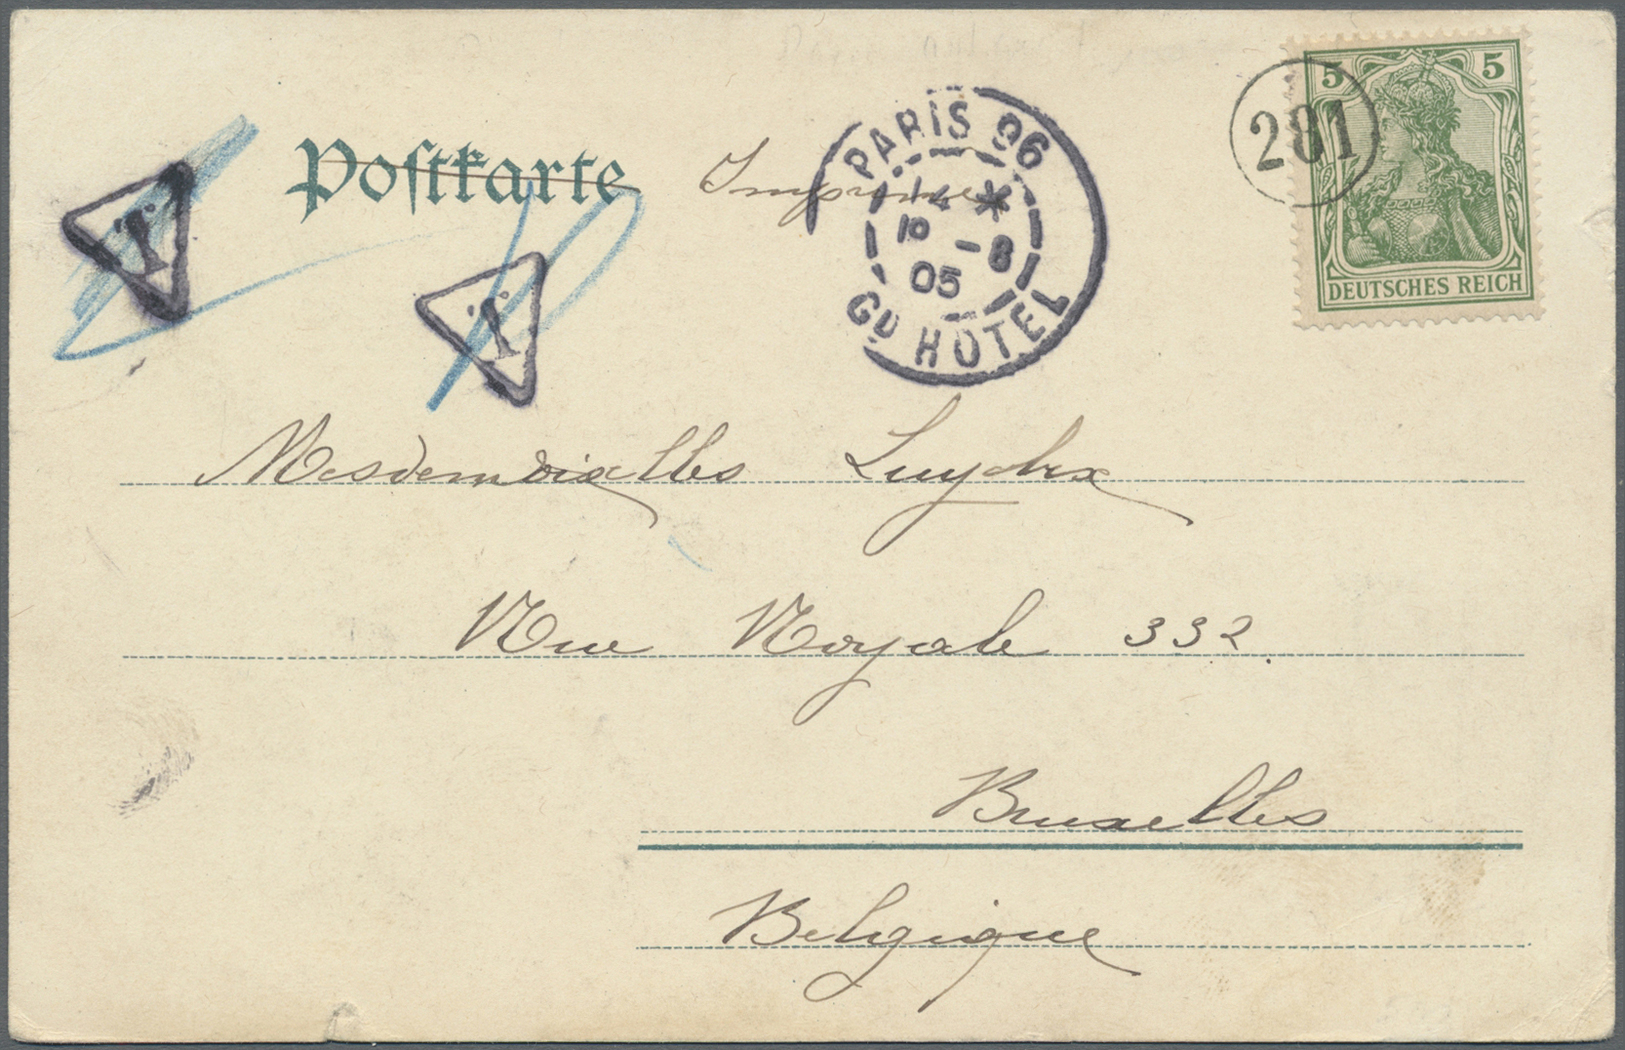 Postkarte Imprimé
PARIS 96
14 *
10 -8
05
GD HOTEL
5 5
DEUTSCHES REICH
281
T
T
Mesdemoiselles Luyckx
Rue Royale 332.
Bruxelles
Belgique